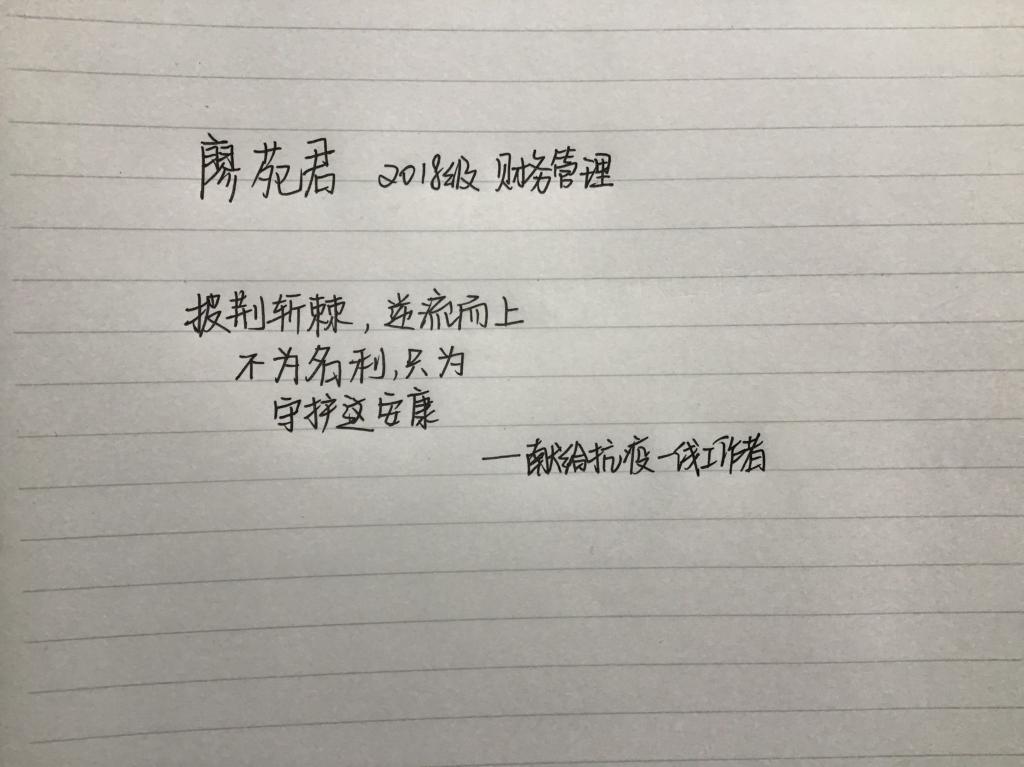 廖苑君 2018级 财务管理
披荆斩棘，逆流而上
不为名利，只为
守护这安康
—献给抗疫一线工作者